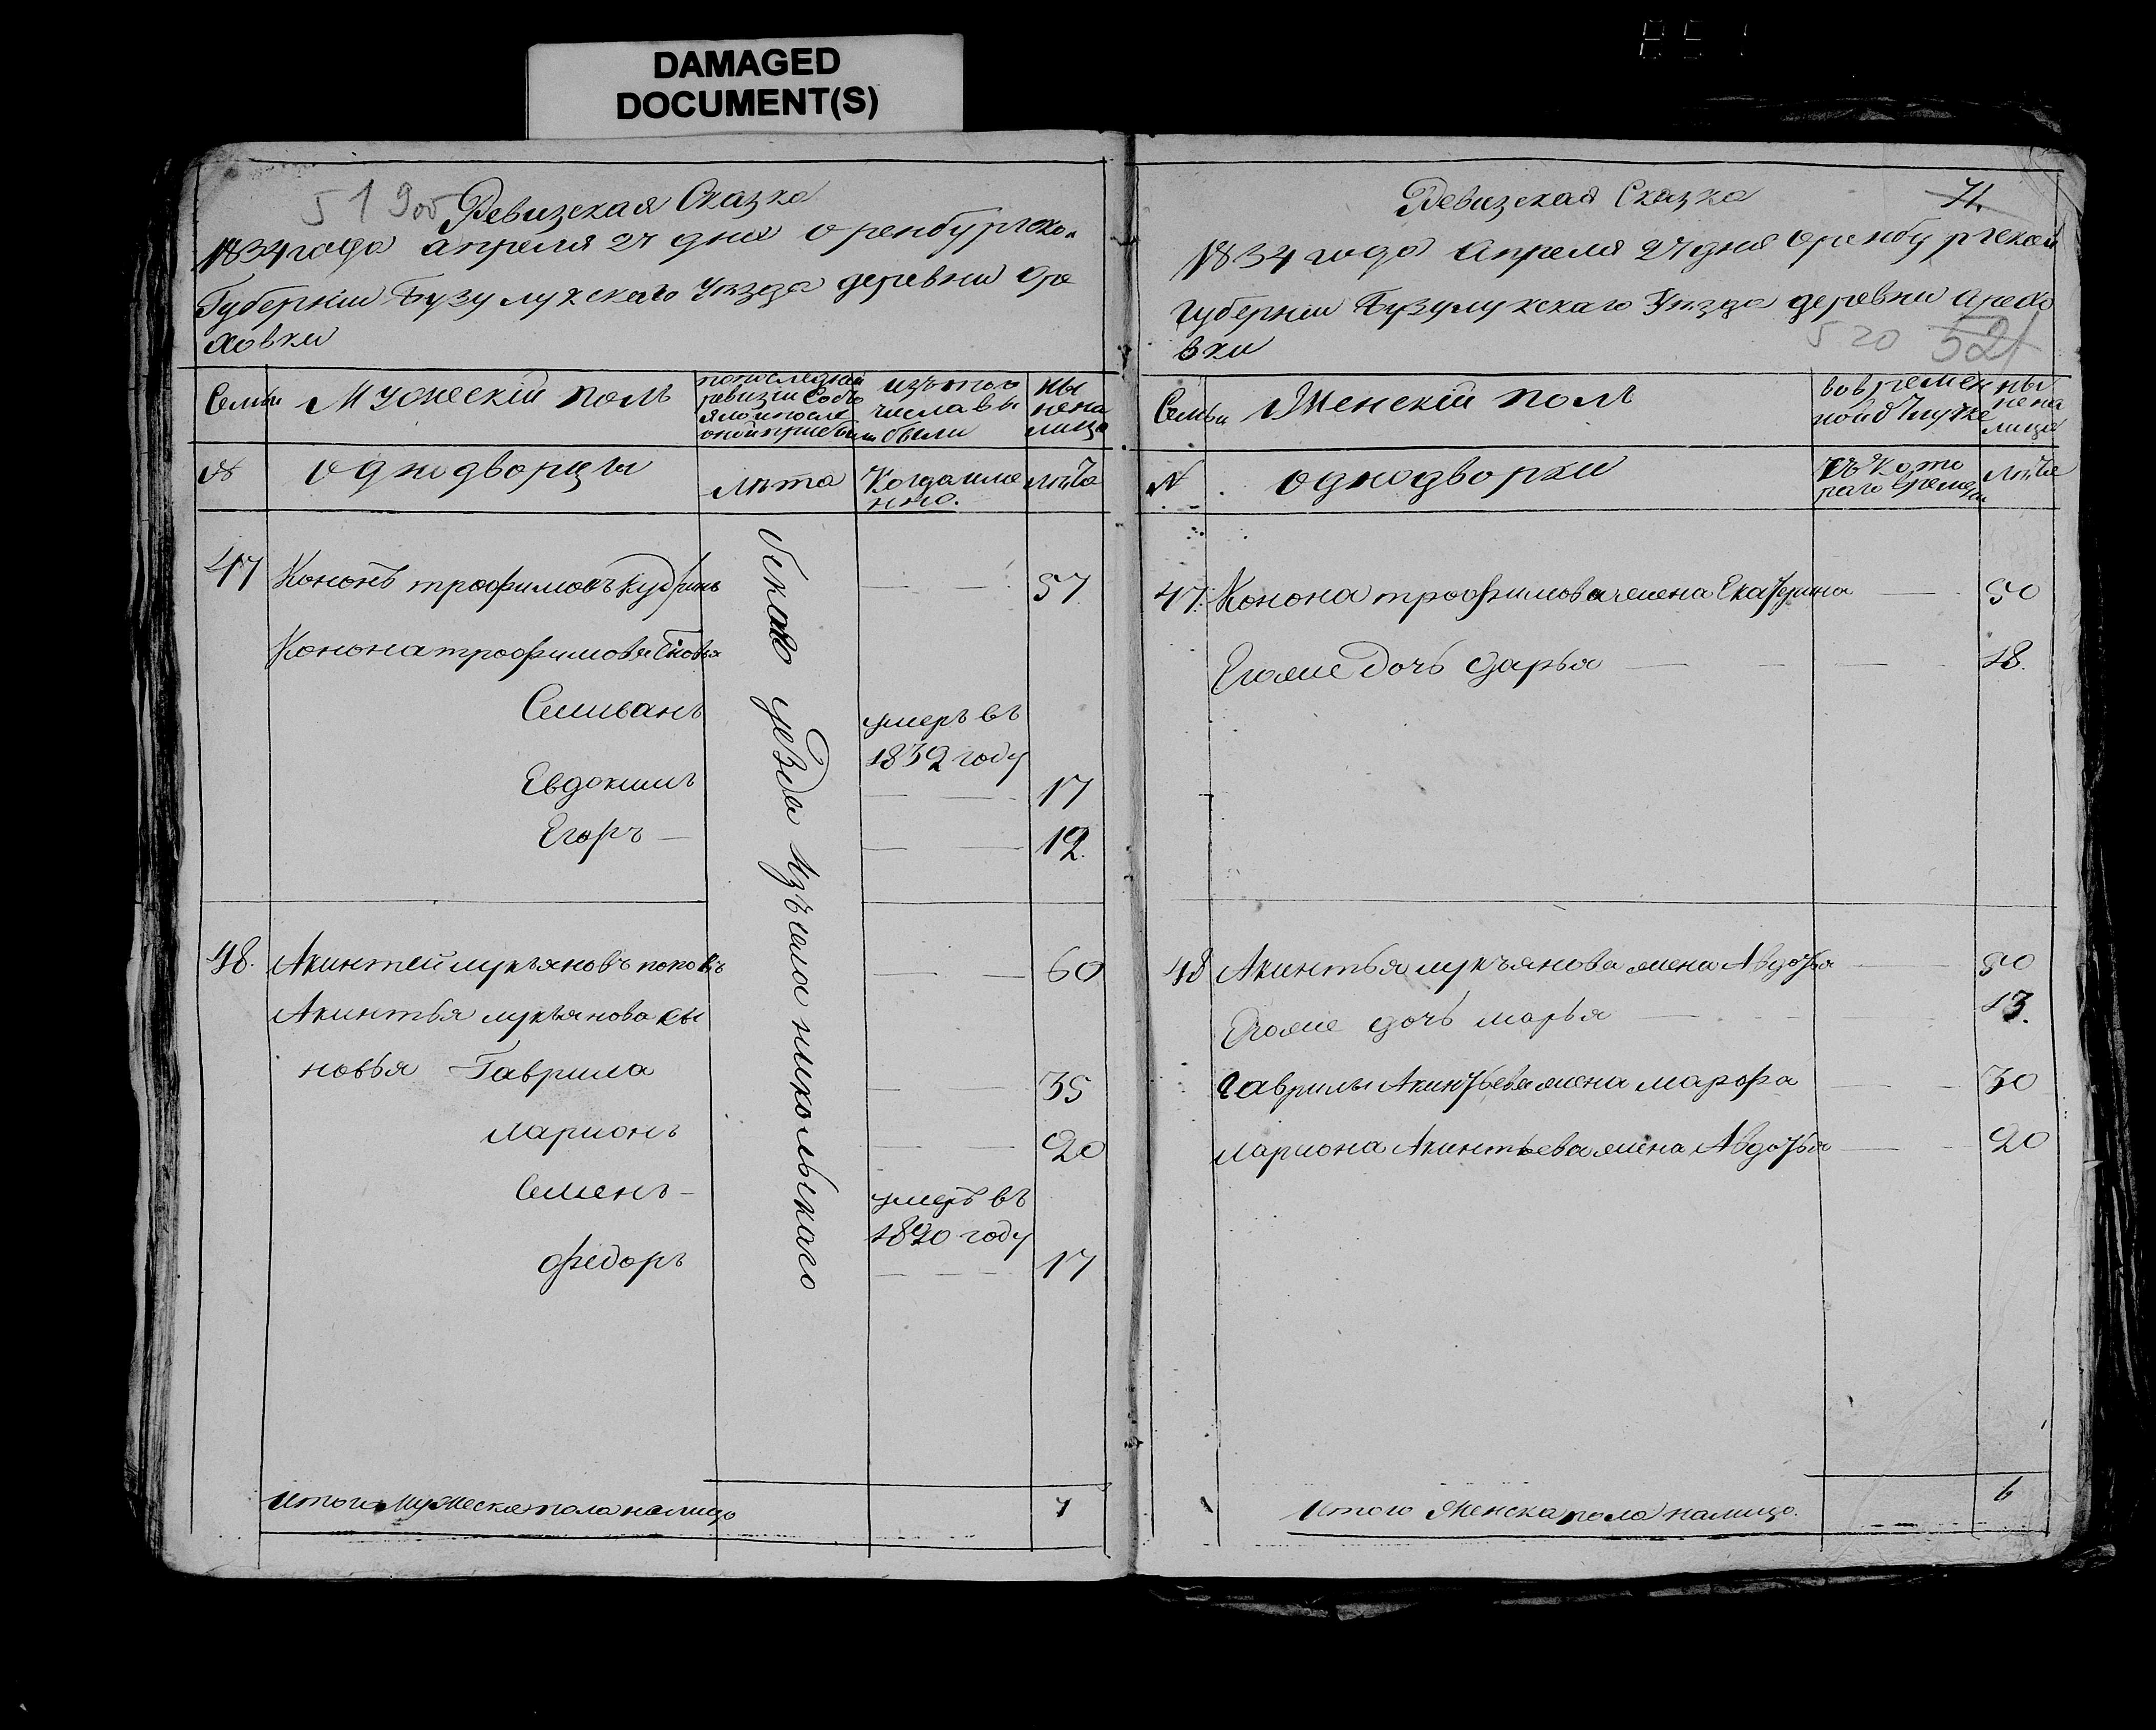 DAMAGED
DOCUMENT(S)
519об
Ревизская Сказка
1834 года апреля 27 дня Оренбургской
Губернiи Бузулукскаго Уѣзда деревни Оре
ховки
Семьи
Мужескiй полъ
попоследней
ревизiи состо
яло и после
оной прибыли
изъ того
числа вы
были
ны
не на
лицо
№
однодворцы
Лѣта
Когда име
нно.
Лѣта
47 Кононъ трофимовъ Кудринъ — — 57
Конона трофимова Сновья
Селиванъ умеръ въ
1832 году
Евдокимъ — — 17
Егоръ — — — 12.
48. Акинтей лукъяновъ поповъ — — 60
Акинтья лукъянова сы
новья Гаврила — — 35
Ларионъ — — 20
Семенъ — умеръ въ
1820 году
Федоръ — — — 17
уезда изъ села никольскаго
Итого Мужеска пола налицо 7
Ревизская Сказка
71.
1834 года Апреля 27 дня Оренбургской
Губернiи Бузулукскаго Уѣзда деревни Орехо
вки
520 521
Семьи
Женскiй полъ
во времен
ной отлучке
ны
не на
лицо
№
однодворки
Съ кото
раго времени
Лѣта
47. Конона трофимова жена Екатерина — — 50
Егоже дочь дарья — — — 18.
48 Акинтья лукъянова жена Авдотья — — 50
Егоже дочь марья — — — 13.
Гаврилы Акинтьева жена марфа — — 30
Лариона Акинтьева жена Авдотья — — 20
Итого Женска пола налицо. 6